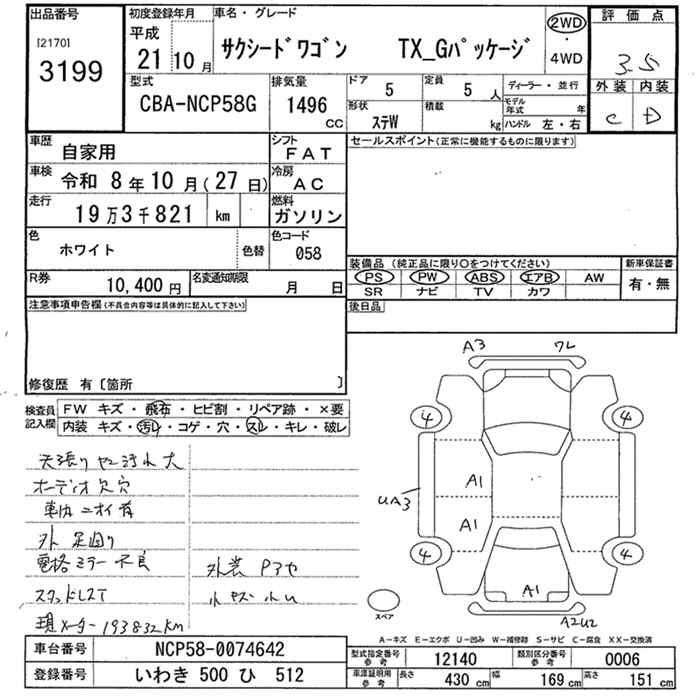 出品番号
[2170]
3199
初度登録年月
平成
21 10月
車名・グレード
サクシードワゴン TX_Gパッケージ
2WD
・
4WD
評価点
3.5
外装 内装
C D
型式
CBA-NCP58G
排気量
1496
CC
ドア
5
定員
5 人
形状
ステW
積載
kg
ディーラー・並行
モデル年式 年
ハンドル 左・右
車歴
自家用
シフト
FAT
車検
令和 8年10月(27日)
冷房
AC
走行
19万3千821 km
燃料
ガソリン
色
ホワイト
色替
色コード
058
R券
10,400円
名変通知期限
月 日
セールスポイント(正常に機能するものに限ります)
装備品 (純正品に限り○をつけてください)
新車保証書
PS PW ABS エアB AW
有・無
SR ナビ TV カワ
後日品
注意事項申告欄(不具合内容等は具体的に記入して下さい)
修復歴 有〔箇所 〕
検査員
記入欄
FW キズ・飛石・ヒビ割・リペア跡・×要
内装 キズ・汚レ・コゲ・穴・スレ・キレ・破レ
天張りヤニ汚れ大
オーディオ欠穴
車内ニオイ有
外 足廻り
電格ミラー不良
スタッドレスT
現メーター193832km
外装 Pアセ
小キズ 小U
A3 ワレ
4 4
A1
UA3
A1
4 4
A1
A2U2
スペア
A－キズ E－エクボ U－凹み W－補修跡 S－サビ C－腐食 XX－交換済
車台番号
NCP58-0074642
登録番号
いわき 500 ひ 512
型式指定番号
参考
12140
類別区分番号
参考
0006
車庫証明用
参考
長さ
430 cm
幅
169 cm
高さ
151 cm